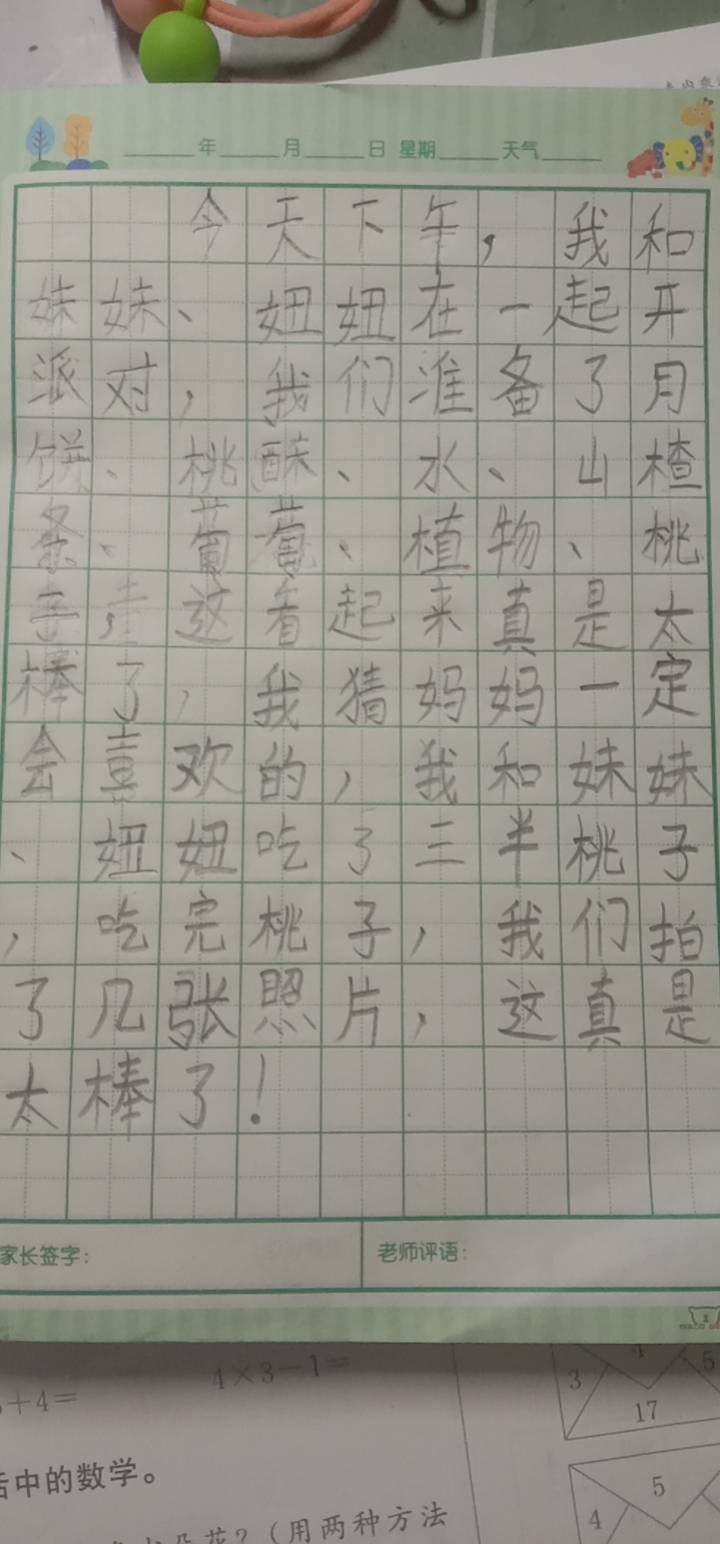 年 月 日 星期 天气
今天下午，我和
妹妹、妞妞在一起开
派对，我们准备了月
饼、桃酥、水、山楂
条、葡萄、植物、桃
子，这看起来真是太
棒了，我猜妈妈一定
会喜欢的，我和妹妹
、妞妞吃了三半桃子
，吃完桃子，我们拍
了几张照片，这真是
太棒了！
家长签字： 老师评语：
+4= 4×3-1= 3 4 5
17
活中的数学。
5
4
花？（用两种方法